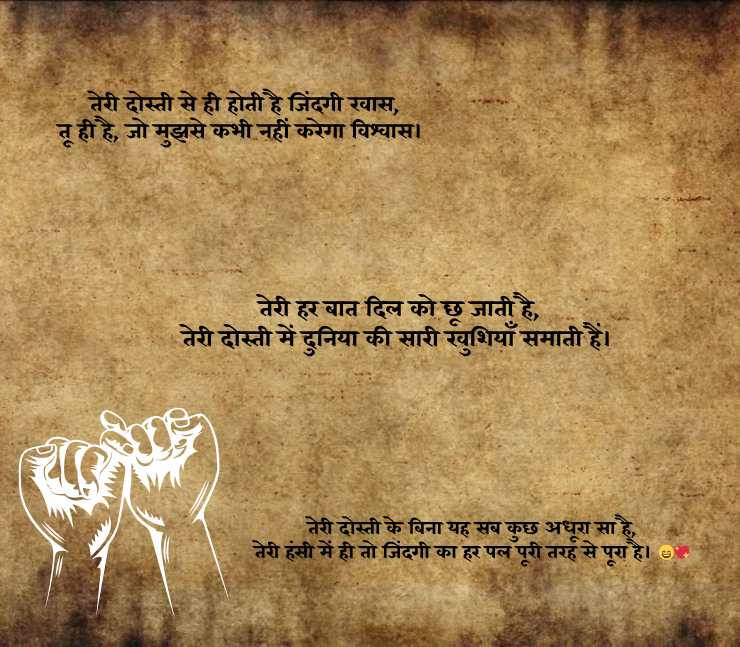 तेरी दोस्ती से ही होती है जिंदगी खास,
तू ही है, जो मुझसे कभी नहीं करेगा विश्वास।
तेरी हर बात दिल को छू जाती है,
तेरी दोस्ती में दुनिया की सारी खुशियाँ समाती हैं।
तेरी दोस्ती के बिना यह सब कुछ अधूरा सा है,
तेरी हंसी में ही तो जिंदगी का हर पल पूरी तरह से पूरा है। 😄💖